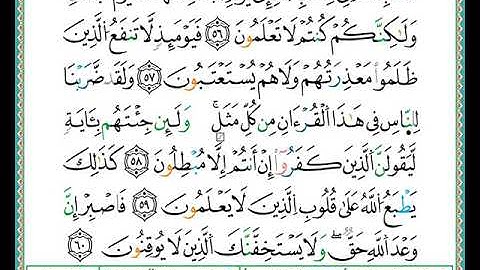 وَلَـٰكِنَّكُمْ كُنتُمْ لَا تَعْلَمُونَ ٥٦ فَيَوْمَئِذٍ لَّا تَنفَعُ ٱلَّذِينَ
ظَلَمُوا۟ مَعْذِرَتُهُمْ وَلَا هُمْ يُسْتَعْتَبُونَ ٥٧ وَلَقَدْ ضَرَبْنَا
لِلنَّاسِ فِى هَـٰذَا ٱلْقُرْءَانِ مِن كُلِّ مَثَلٍ ۚ وَلَئِن جِئْتَهُم بِـَٔايَةٍ
لَّيَقُولَنَّ ٱلَّذِينَ كَفَرُوٓا۟ إِنْ أَنتُمْ إِلَّا مُبْطِلُونَ ٥٨ كَذَٰلِكَ
يَطْبَعُ ٱللَّهُ عَلَىٰ قُلُوبِ ٱلَّذِينَ لَا يَعْلَمُونَ ٥٩ فَٱصْبِرْ إِنَّ
وَعْدَ ٱللَّهِ حَقٌّ ۖ وَلَا يَسْتَخِفَّنَّكَ ٱلَّذِينَ لَا يُوقِنُونَ ٦٠